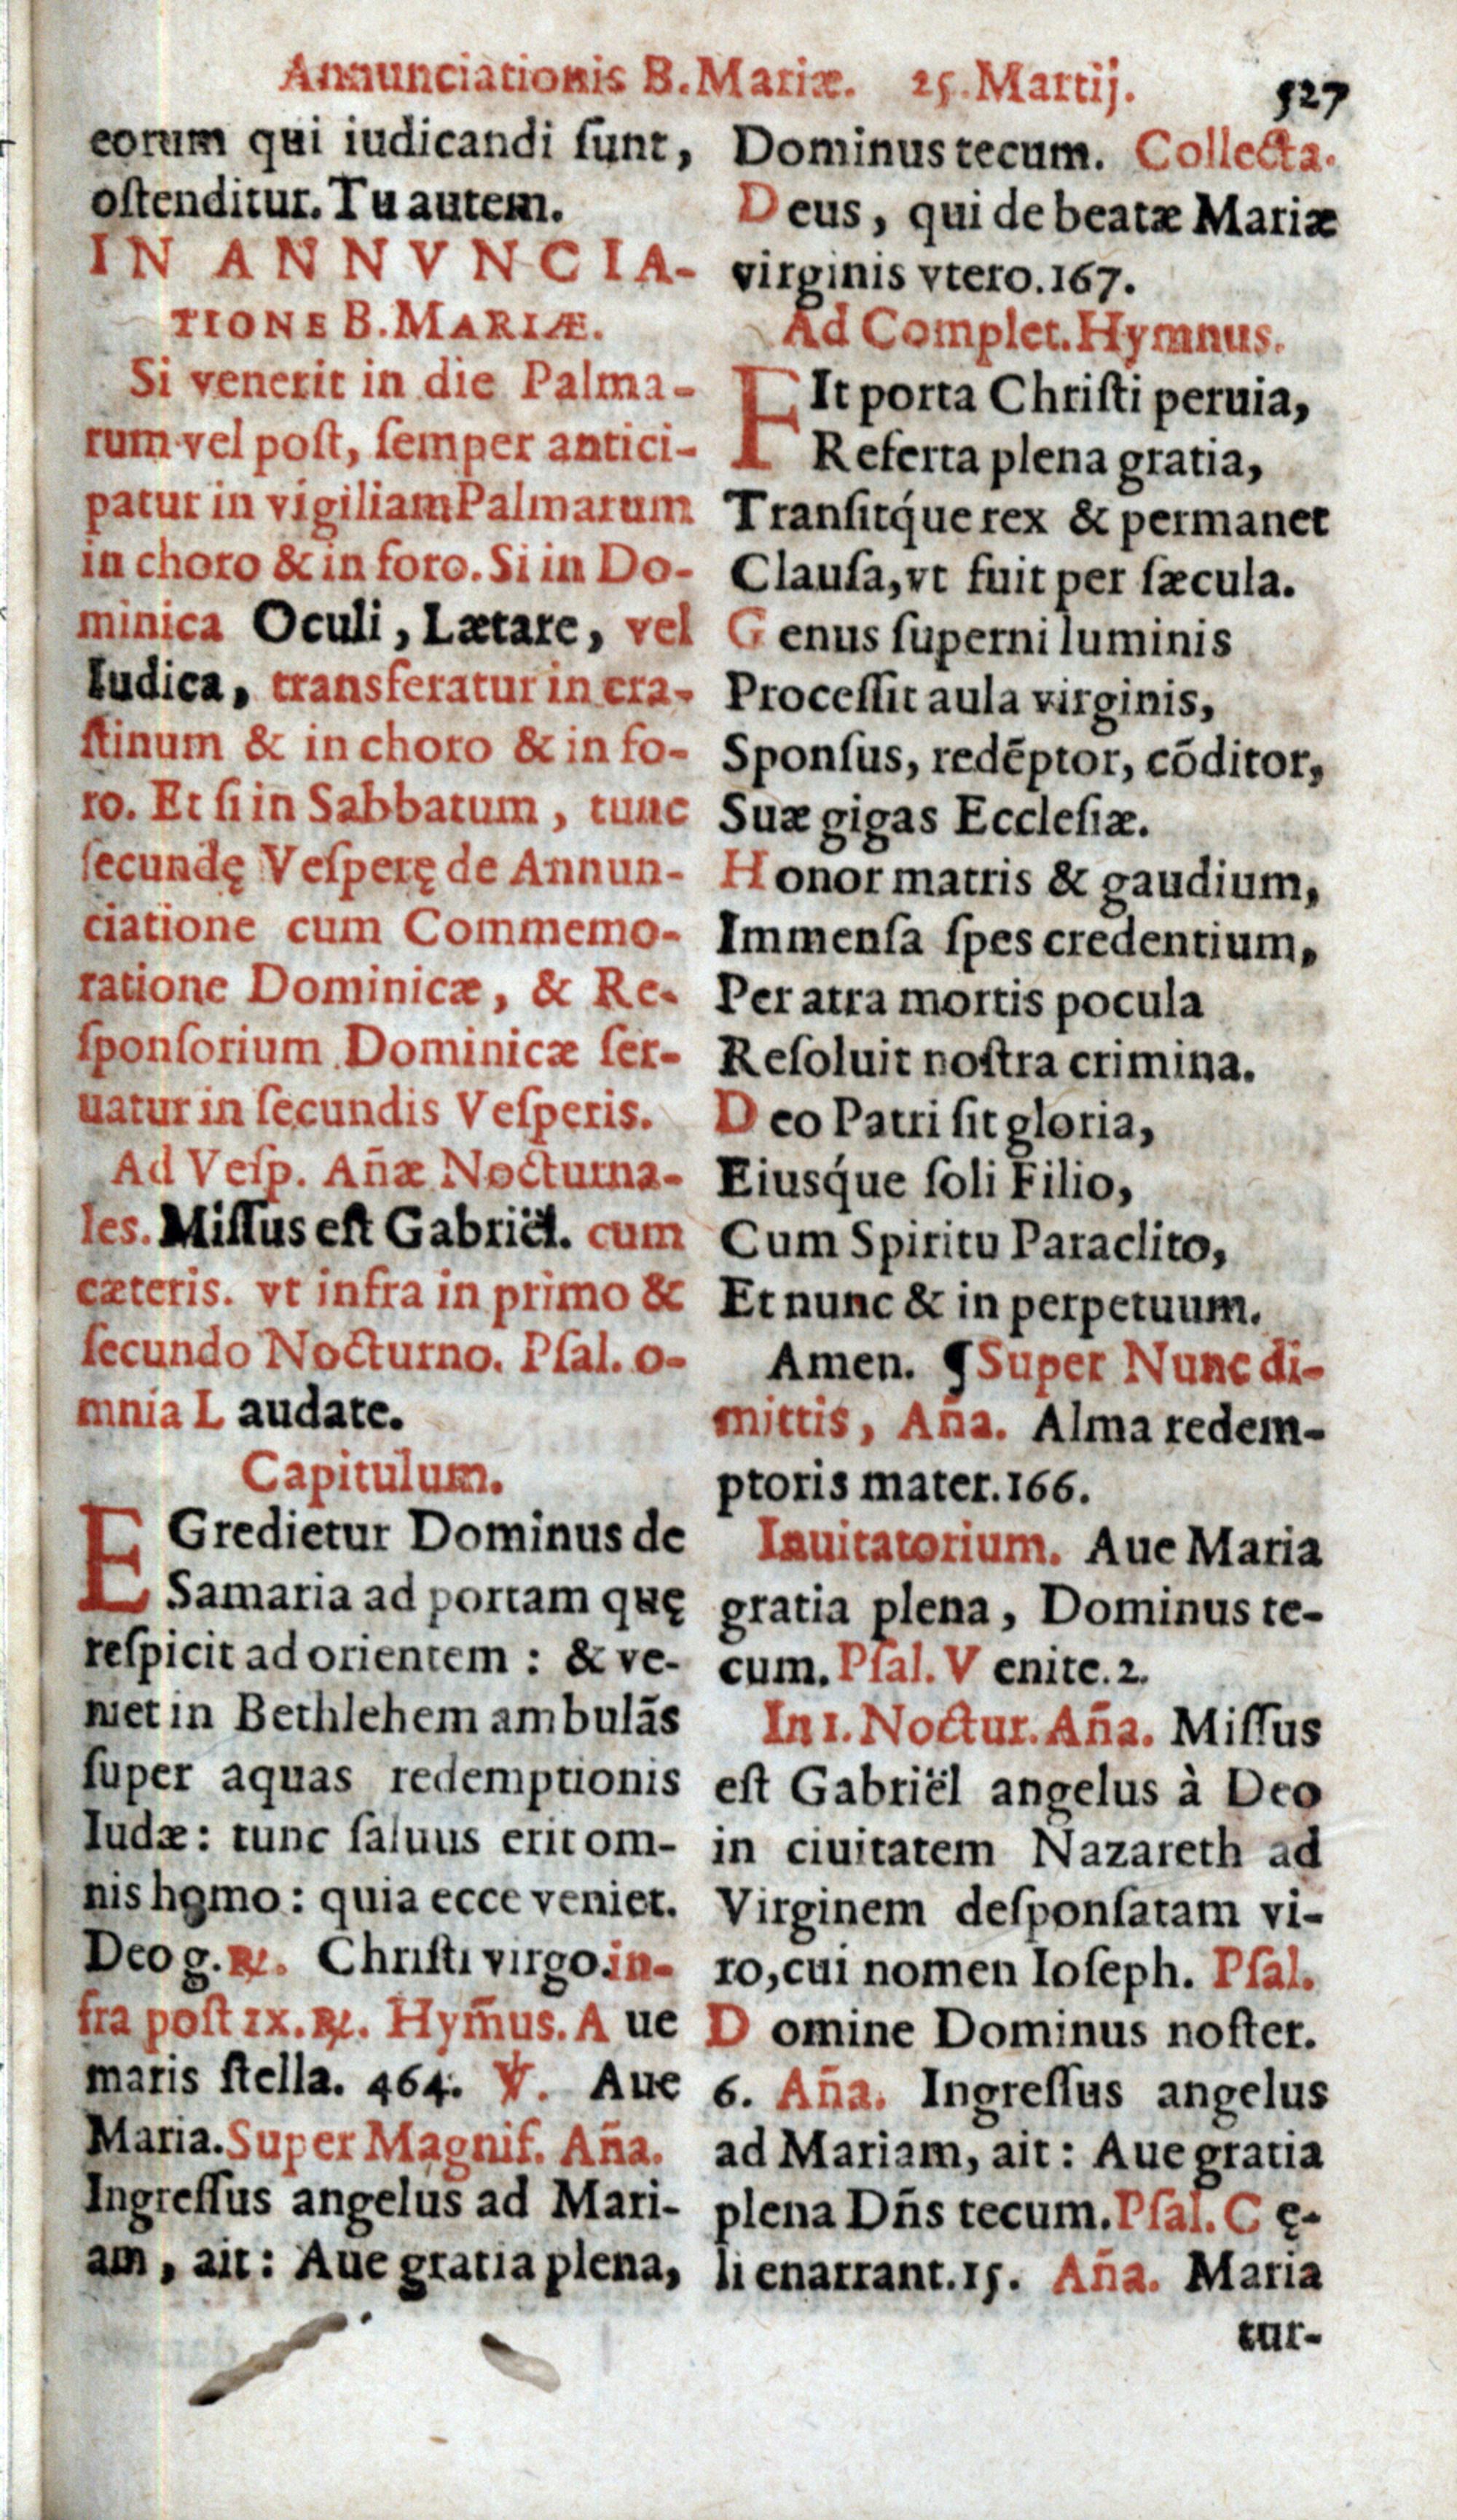 Annunciationis B. Mariæ. 25. Martij. 527
eorum qui iudicandi ſunt,
oſtenditur. Tu autem.
IN ANNVNCIA-
TIONE B. MARIÆ.
Si venerit in die Palma-
rum vel poſt, ſemper antici-
patur in vigiliam Palmarum
in choro & in foro. Si in Do-
minica Oculi, Lætare, vel
Iudica, transferatur in cra-
ſtinum & in choro & in fo-
ro. Et ſi in Sabbatum, tunc
ſecundę Veſperę de Annun-
ciatione cum Commemo-
ratione Dominicæ, & Re-
ſponſorium Dominicæ ſer-
uatur in ſecundis Veſperis.
Ad Veſp. Añæ Nocturna-
les. Miſſus eſt Gabriël. cum
cæteris. vt infra in primo &
ſecundo Nocturno. Pſal. o-
mnia L audate.
Capitulum.
EGredietur Dominus de
Samaria ad portam quę
reſpicit ad orientem : & ve-
niet in Bethlehem ambulãs
ſuper aquas redemptionis
Iudæ : tunc ſaluus erit om-
nis homo : quia ecce veniet.
Deo g. ℟. Chriſti virgo. in-
fra poſt IX. ℟. Hym̃us. A ue
maris ſtella. 464. ℣. Aue
Maria. Super Magnif. Aña.
Ingreſſus angelus ad Mari-
am, ait : Aue gratia plena,
Dominus tecum. Collecta.
D eus, qui de beatæ Mariæ
virginis vtero. 167.
Ad Complet. Hymnus.
FIt porta Chriſti peruia,
Referta plena gratia,
Tranſitq́ue rex & permanet
Clauſa, vt fuit per ſæcula.
G enus ſuperni luminis
Proceſſit aula virginis,
Sponſus, redẽptor, cõditor,
Suæ gigas Eccleſiæ.
H onor matris & gaudium,
Immenſa ſpes credentium,
Per atra mortis pocula
Reſoluit noſtra crimina.
D eo Patri ſit gloria,
Eiusq́ue ſoli Filio,
Cum Spiritu Paraclito,
Et nunc & in perpetuum.
Amen. ¶ Super Nunc di-
mittis, Aña. Alma redem-
ptoris mater. 166.
Inuitatorium. Aue Maria
gratia plena, Dominus te-
cum. Pſal. V enite. 2.
In 1. Noctur. Aña. Miſſus
eſt Gabriël angelus à Deo
in ciuitatem Nazareth ad
Virginem deſponſatam vi-
ro, cui nomen Ioſeph. Pſal.
D omine Dominus noſter.
6. Aña. Ingreſſus angelus
ad Mariam, ait : Aue gratia
plena Dñs tecum. Pſal. C ę-
li enarrant. 15. Aña. Maria
tur-